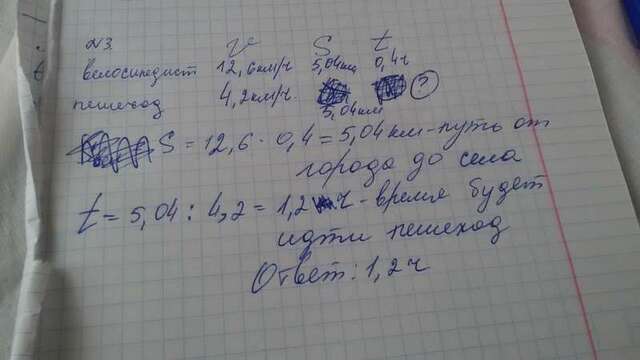 N3.
V S t
велосипедист 12,6 км/ч 5,04км 0,4ч
пешеход 4,2км/ч. ?
5,04км
S = 12,6 · 0,4 = 5,04 км - путь от
города до села
t = 5,04 : 4,2 = 1,2 ч - время будет
идти пешеход
Ответ: 1,2 ч